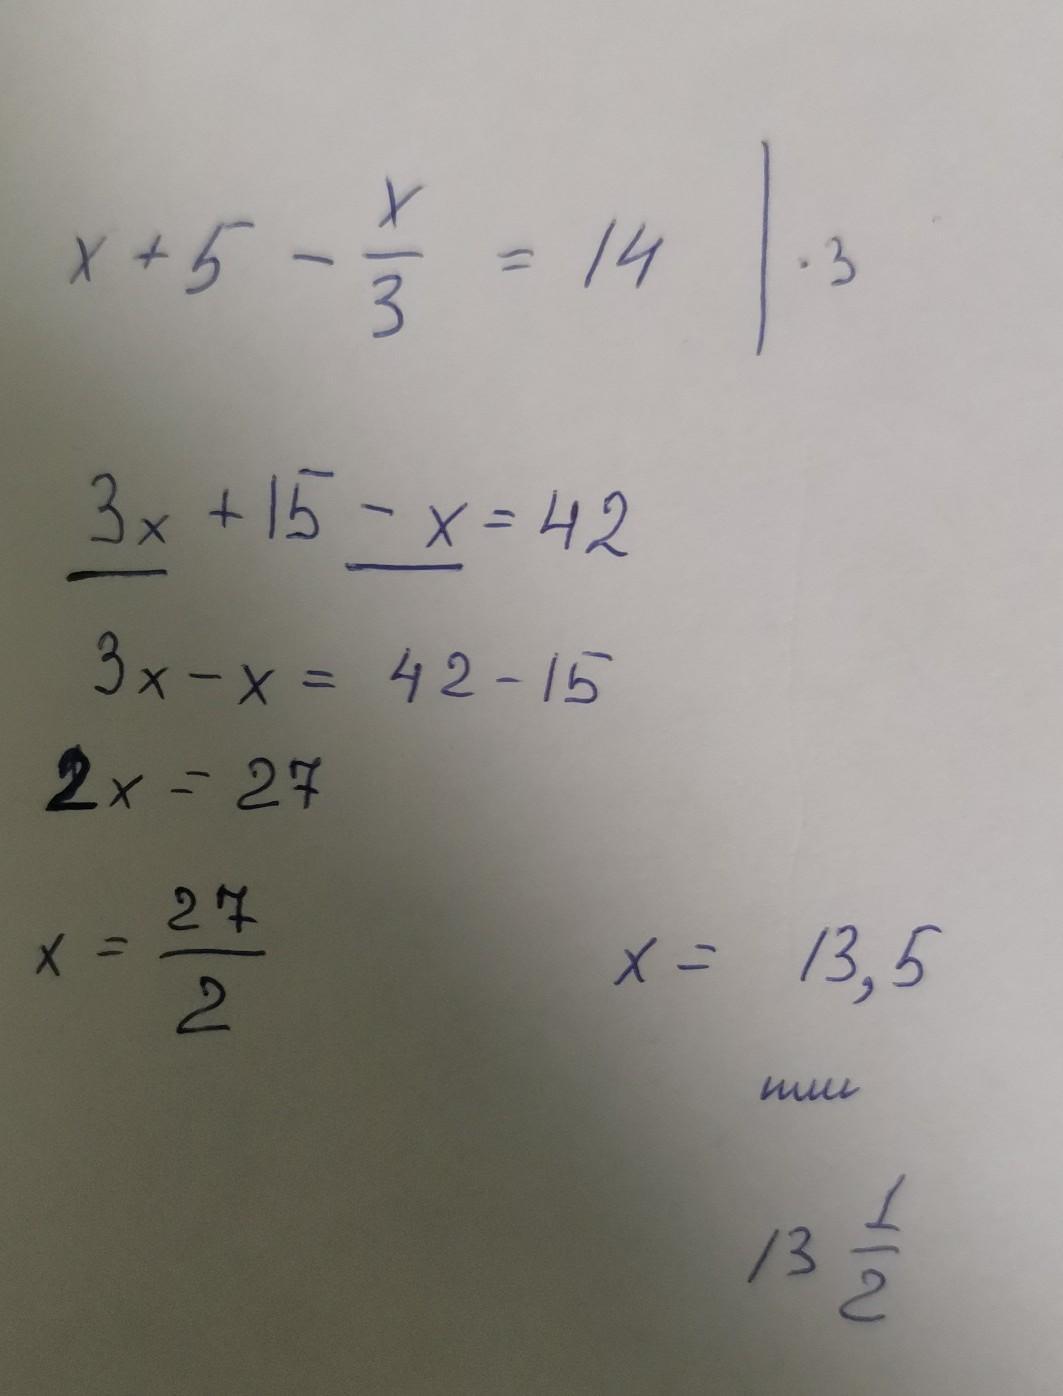 x + 5 - x/3 = 14 | · 3
3x + 15 - x = 42
3x - x = 42 - 15
2x = 27
x = 27/2
x = 13,5
или
13 1/2